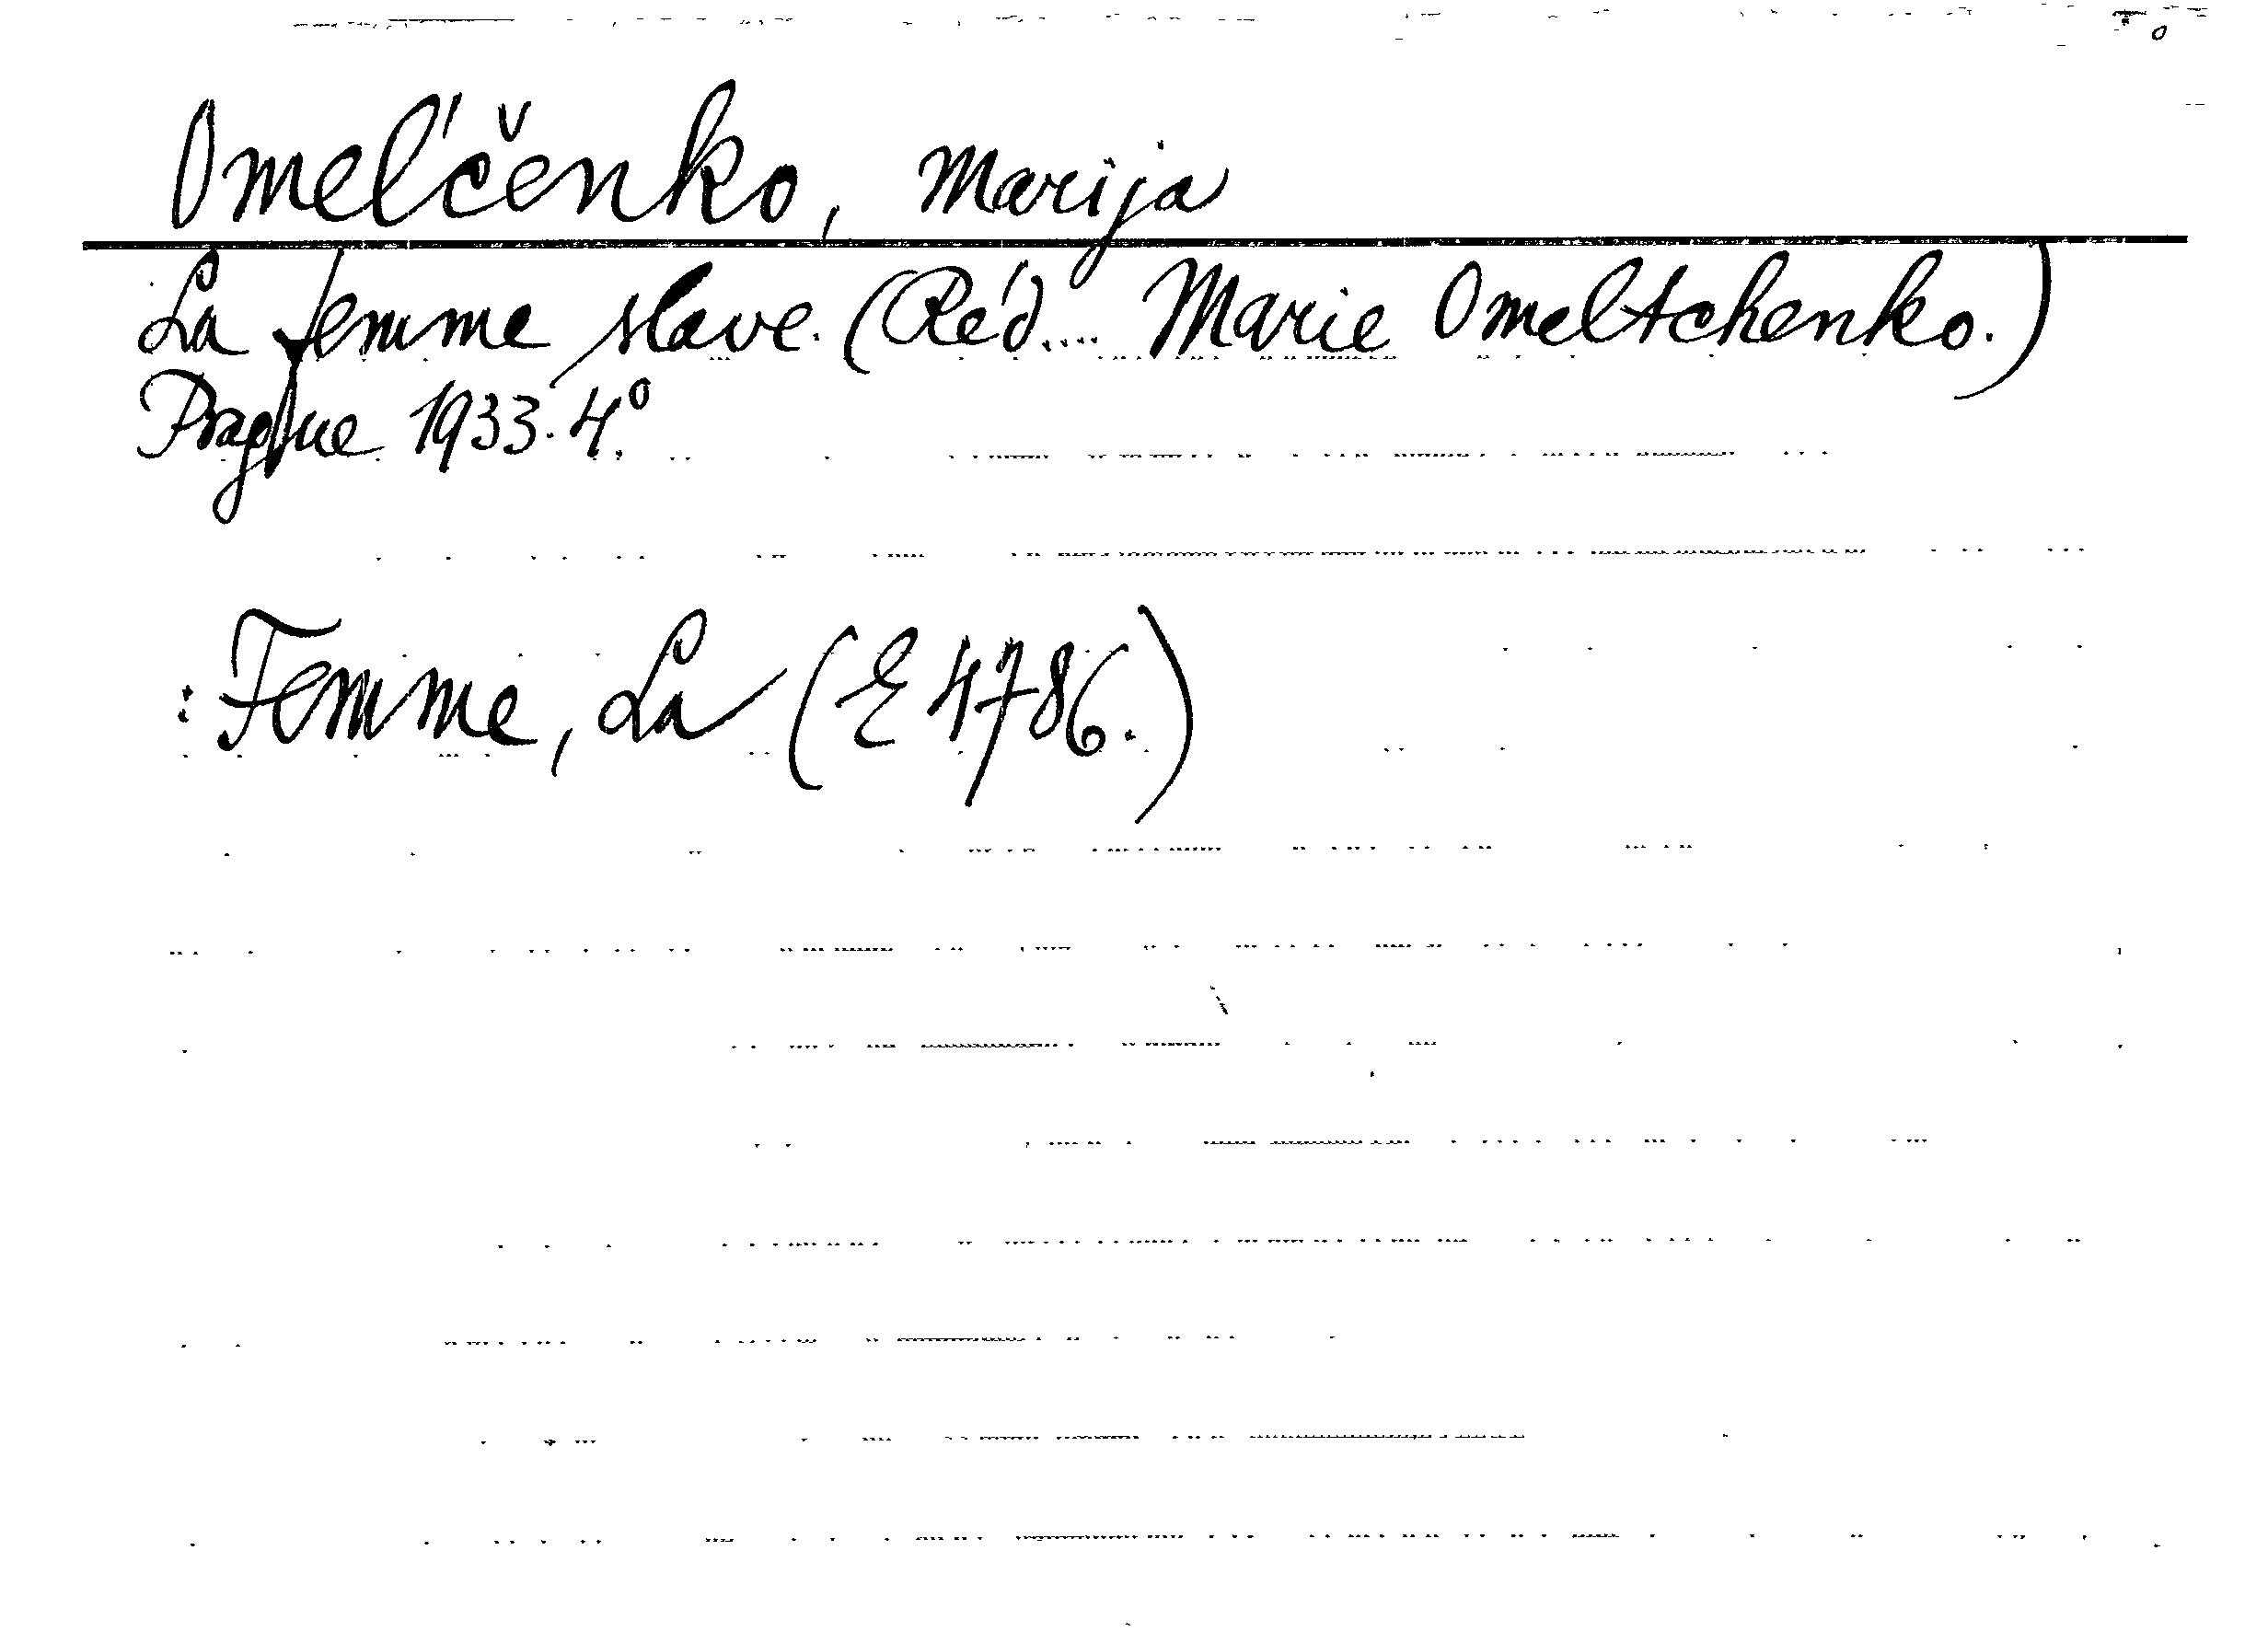 Omel'čenko, Marija
La femme slave. (Réd.... Marie Omeltchenko.)
Prague 1933. 4°.
: Femme, La (E 4786.)